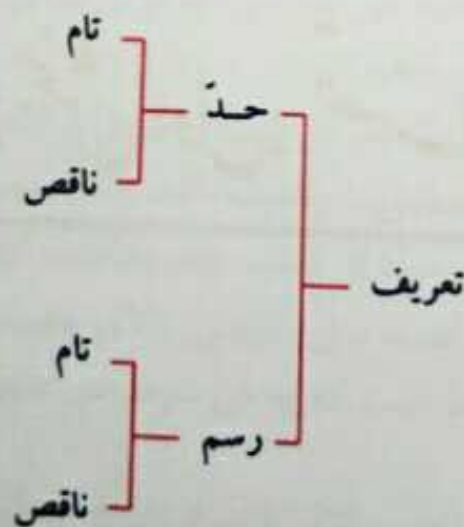 تعریف
حدّ
تام
ناقص
رسم
تام
ناقص